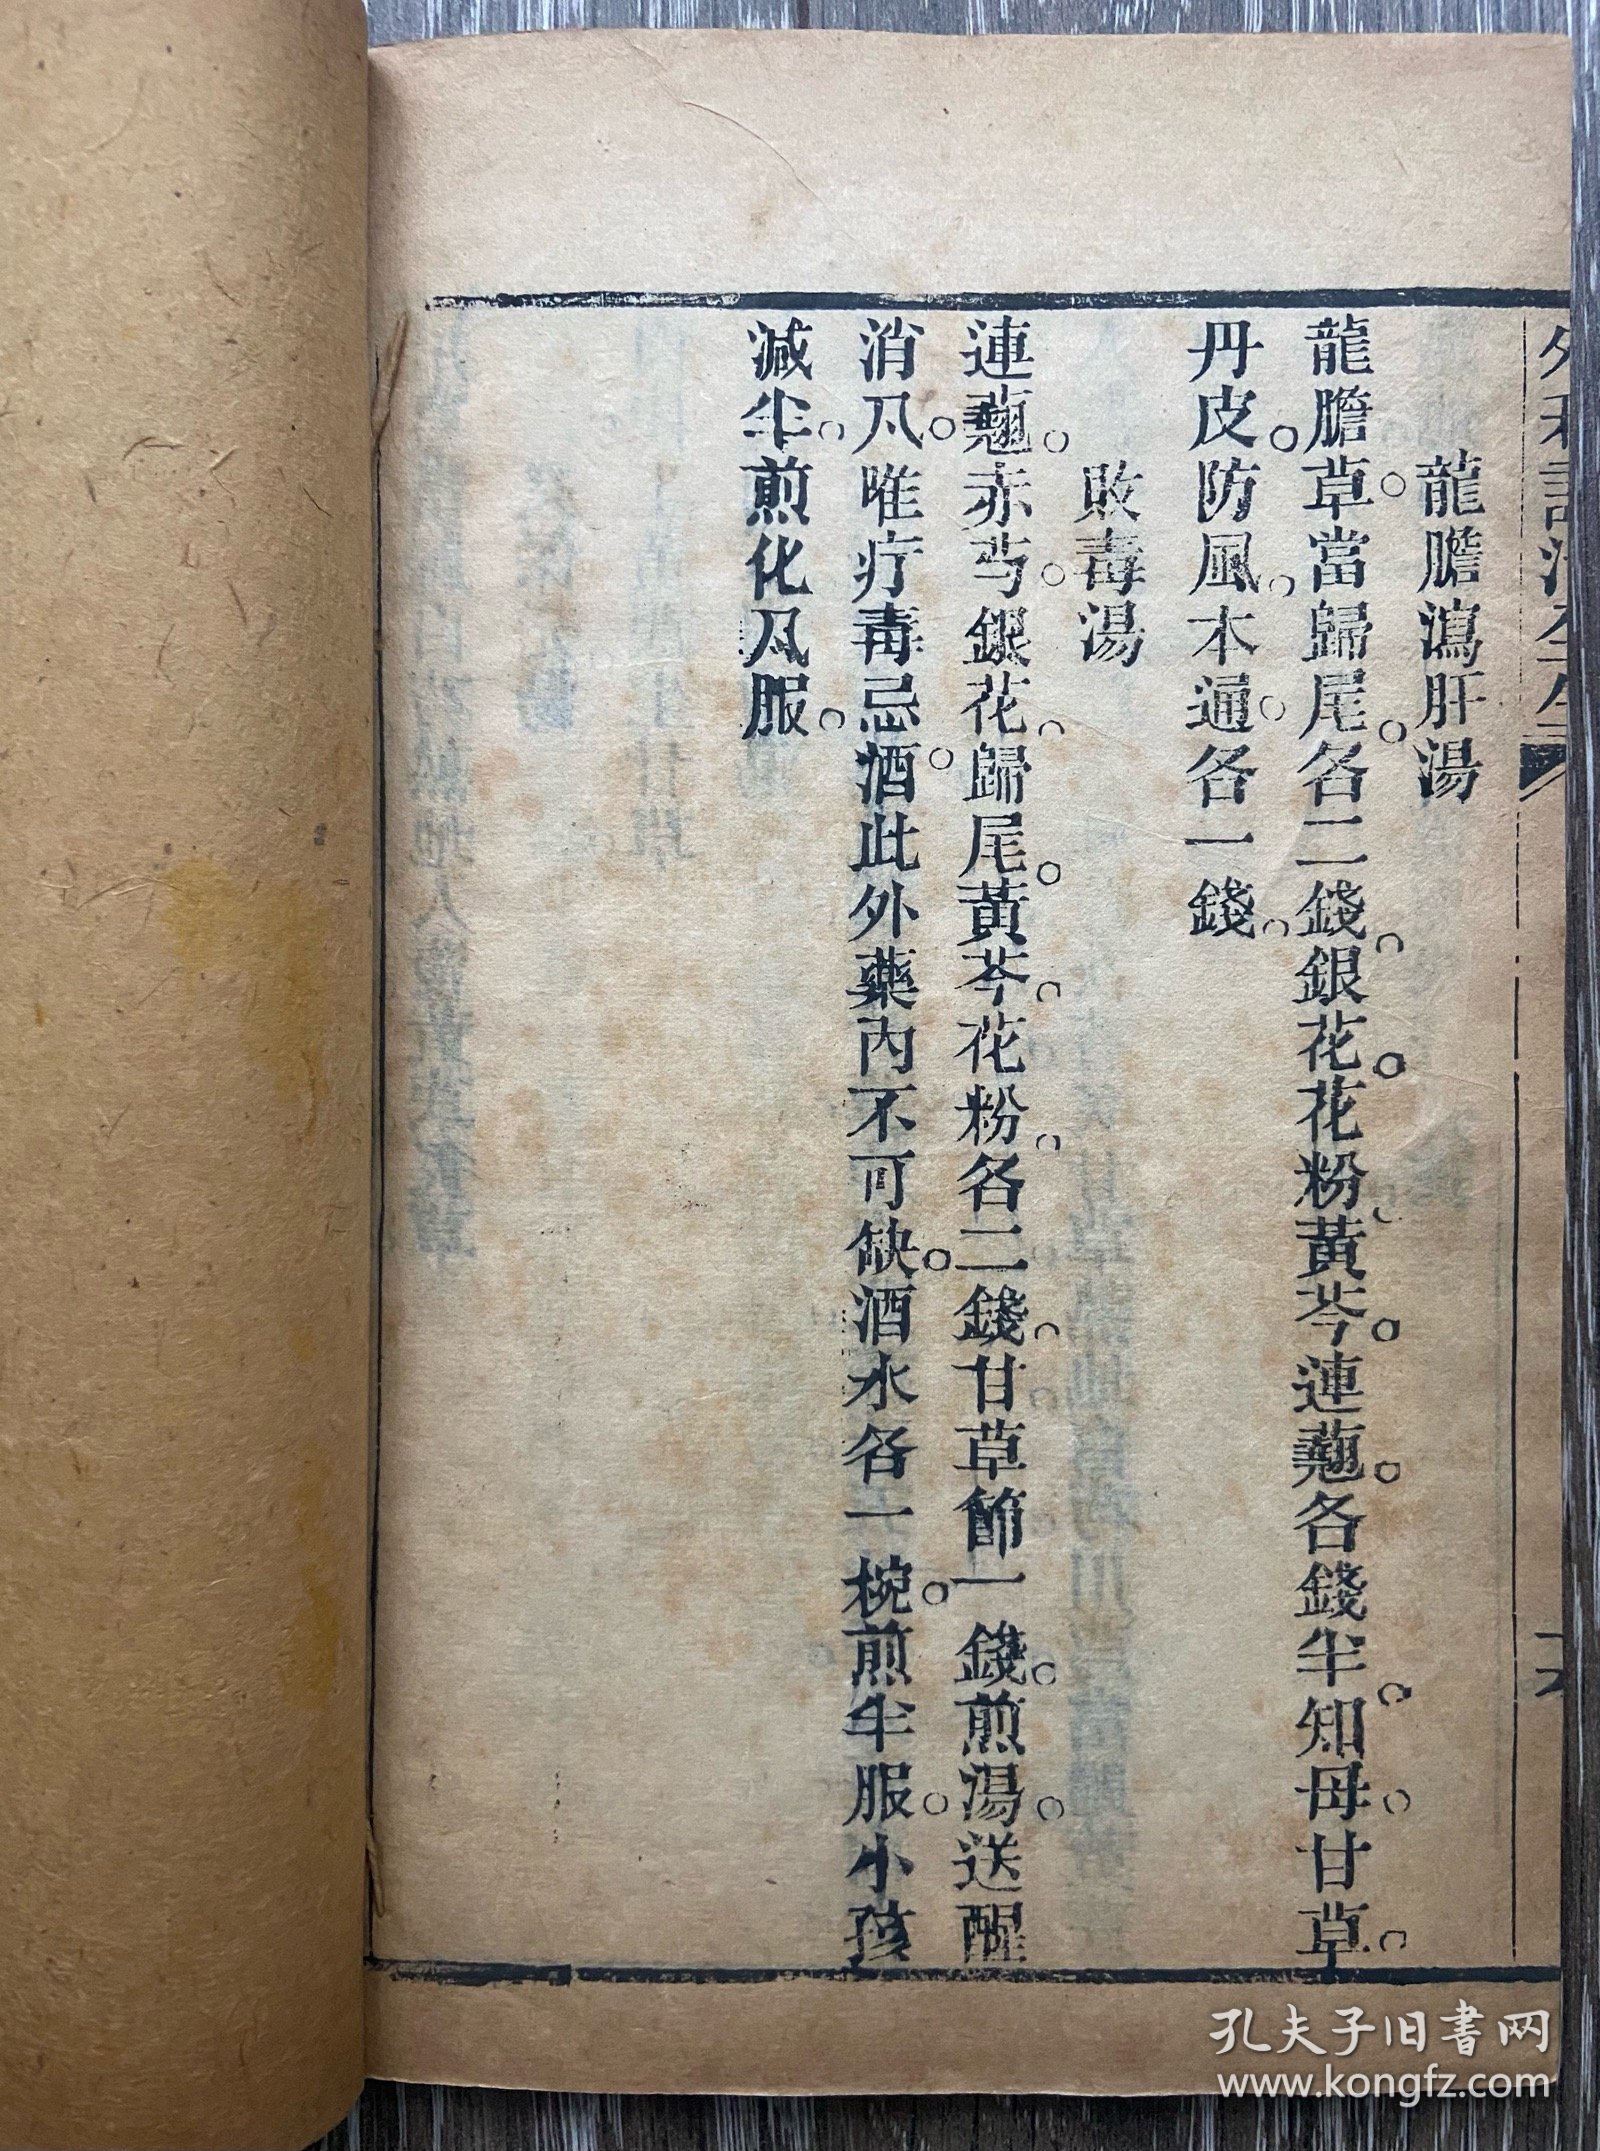 龍膽瀉肝湯
龍膽草。當歸尾。各二錢。銀花。花粉。黃芩。連翹。各錢半。知母。甘草。
丹皮。防風。木通。各一錢。
敗毒湯
連翹。赤芍。銀花。歸尾。黃芩。花粉。各二錢。甘草節一錢。煎湯。送醒
消丸。唯疔毒忌酒。此外藥內不可缺。酒水各一椀。煎半服。小孩
減半。煎化丸服。
孔夫子旧书网
www.kongfz.com